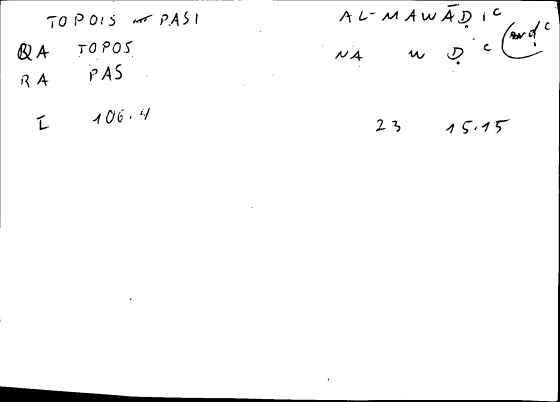 TOPOIS PASI
AL-MAWĀḌiᶜ
QA TOPOS
NA W Ḍ ᶜ (mwḍᶜ
RA PAS
I 106.4
23 15.15